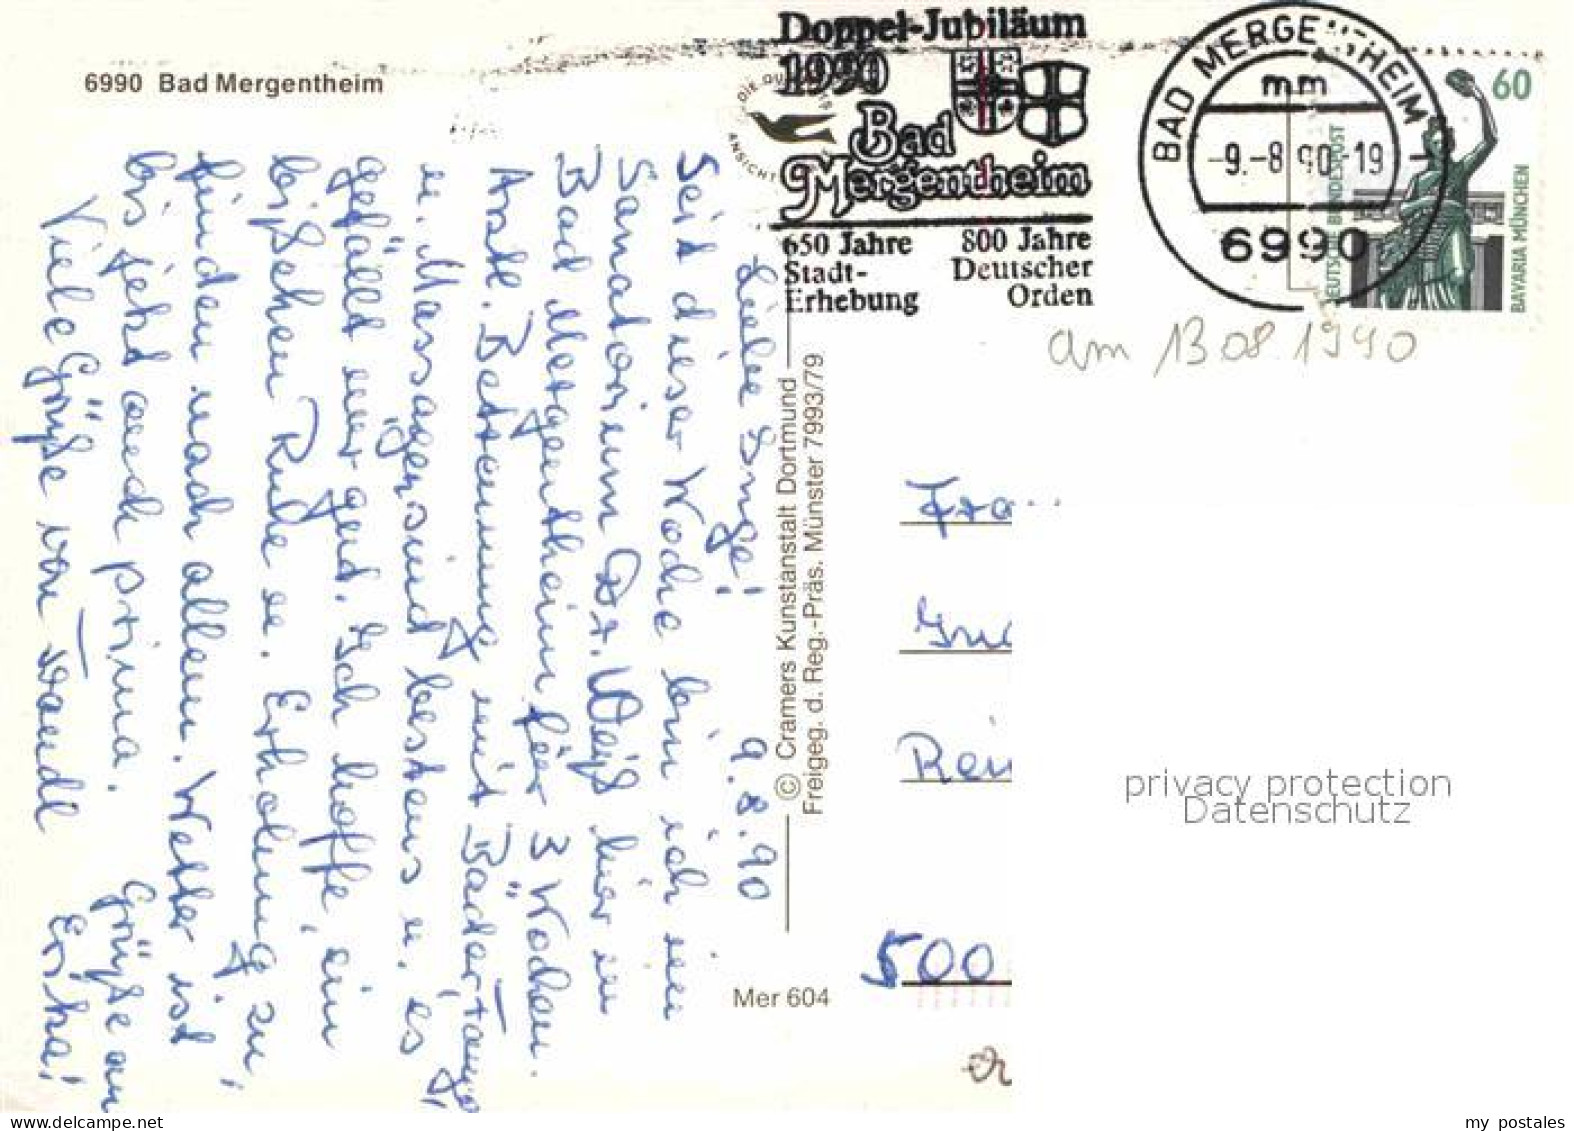 6990 Bad Mergentheim
Doppel-Jubiläum
1990
Bad
Mergentheim
650 Jahre
Stadt-
Erhebung
800 Jahre
Deutscher
Orden
BAD MERGENTHEIM 1
mm
-9.-8 90-19
6990
60
DEUTSCHE BUNDESPOST
BAVARIA MÜNCHEN
am 13 08 1990
9.8.90
Liebe Inge!
Seit dieser Woche bin ich im
Sanatorium Dr. Weiß hier in
Bad Mergentheim für 3 Wochen.
Arztl. Betreuung mit Bäder,
u. Massagen sind bestens u. es
gefällt mir gut. Ich hoffe, ein
bißchen Ruhe u. Erholung zu
finden nach allem. Wetter ist
bis jetzt auch prima.
Viele Grüße von Erika!
Grüße an
© Cramers Kunstanstalt Dortmund
Freigeg. d. Reg.-Präs. Münster 7993/79
Mer 604
500
privacy protection
Datenschutz
my postales
www.delcampe.net